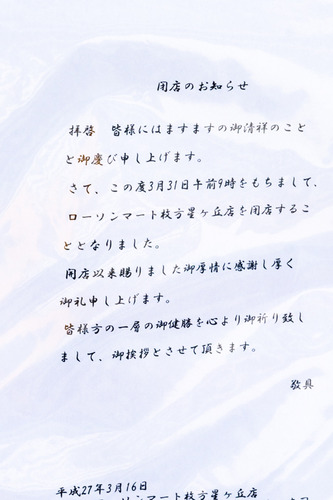 閉店のお知らせ
拝啓 皆様にはますますの御清祥のこと
と御慶び申し上げます。
さて、この度3月31日午前9時をもちまして、
ローソンマート枚方星ヶ丘店を閉店するこ
ととなりました。
開店以来賜りました御厚情に感謝し厚く
御礼申し上げます。
皆様方の一層の御健勝を心より御祈り致し
まして、御挨拶とさせて頂きます。
敬具
平成27年3月16日
ローソンマート枚方星ヶ丘店